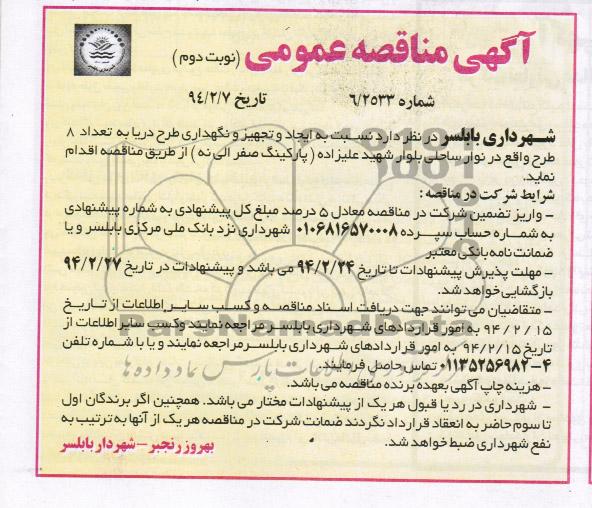 آگهی مناقصه عمومی (نوبت دوم)
شماره ۶/۲۵۳۳ تاریخ ۹۴/۲/۷
شهرداری بابلسر در نظر دارد نسبت به ایجاد و تجهیز و نگهداری طرح دریا به تعداد ۸
طرح واقع در نوار ساحلی بلوار شهید علیزاده ( پارکینگ صفر الی نه ) از طریق مناقصه اقدام
نماید.
شرایط شرکت در مناقصه :
- واریز تضمین شرکت در مناقصه معادل ۵ درصد مبلغ کل پیشنهادی به شماره پیشنهادی
به شماره حساب سپرده ۰۱۰۶۸۱۶۵۷۰۰۰۸ شهرداری نزد بانک ملی مرکزی بابلسر و یا
ضمانت نامه بانکی معتبر
- مهلت پذیرش پیشنهادات تا تاریخ ۹۴/۲/۲۴ می باشد و پیشنهادات در تاریخ ۹۴/۲/۲۷
بازگشایی خواهد شد.
- متقاضیان می توانند جهت دریافت اسناد مناقصه و کسب سایر اطلاعات از تاریخ
۹۴/۲/۱۵ به امور قراردادهای شهرداری بابلسر مراجعه نمایند وکسب سایر اطلاعات از
تاریخ ۹۴/۲/۱۵ به امور قراردادهای شهرداری بابلسر مراجعه نمایند و یا با شماره تلفن
۰۱۱۳۵۲۵۶۹۸۲-۴ تماس حاصل فرمایند.
- هزینه چاپ آگهی بعهده برنده مناقصه می باشد.
- شهرداری در رد یا قبول هر یک از پیشنهادات مختار می باشد. همچنین اگر برندگان اول
تا سوم حاضر به انعقاد قرارداد نگردند ضمانت شرکت در مناقصه هر یک از آنها به ترتیب به
نفع شهرداری ضبط خواهد شد.
بهروز رنجبر - شهردار بابلسر
ParsNamadData